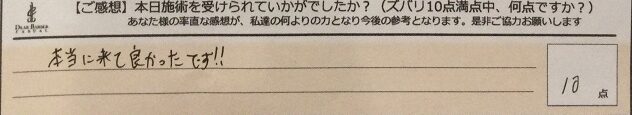 【ご感想】本日施術を受けられていかがでしたか？（ズバリ10点満点中、何点ですか？）
DEAR BARBER
CASUAL
あなた様の率直な感想が、私達の何よりの力となり今後の参考となります。是非ご協力お願いします
本当に来て良かったです!!
10 点